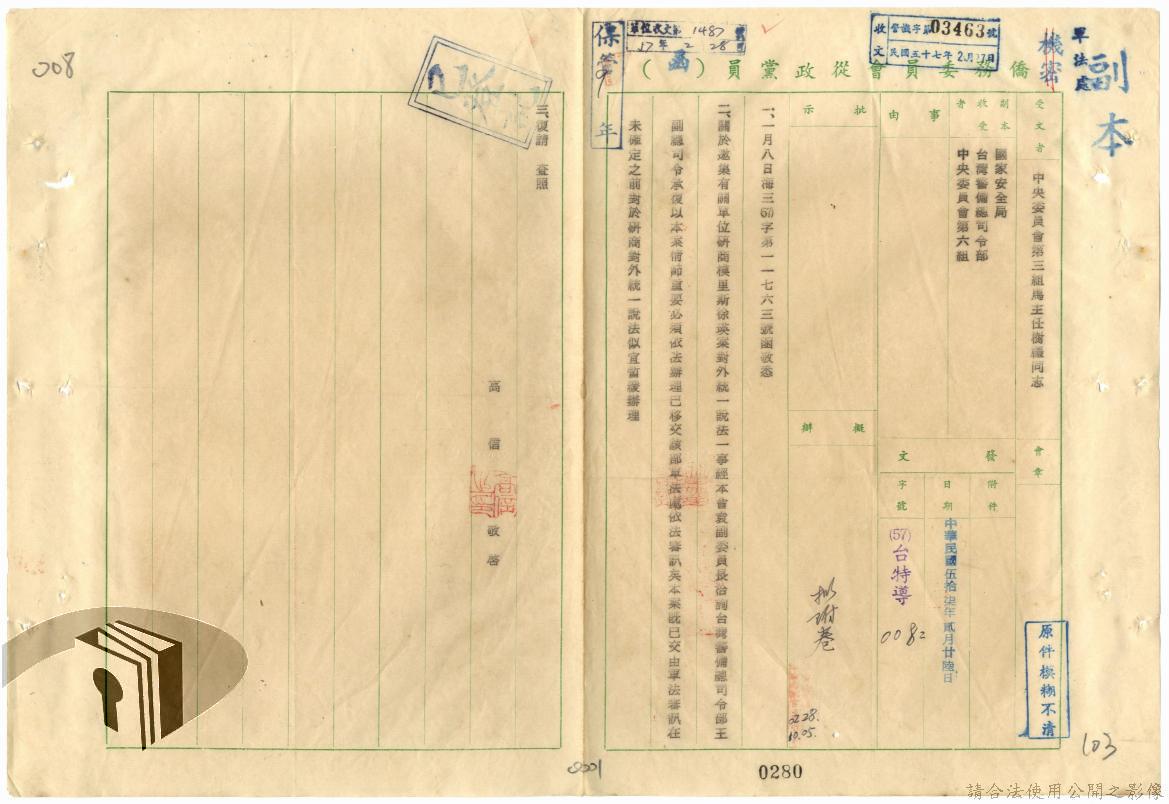 副本
軍法處
機密
僑務委員會從政黨員（函）
收文 警備字第03463號
民國五十七年2月27日
單位收文第1487號
57年2月28日
保管
年
受文者 中央委員會第三組馬主任樹禮同志
副本收受者
國家安全局
台灣警備總司令部
中央委員會第六組
會章
事由
發文
附件
日期 中華民國伍拾柒年貳月廿陸日
字號 (57)台特導 0082
批示
擬辦
擬附卷
02.28.
10.05.
一、一月八日海三(57)字第一一七六三號函敬悉
二、關於邀集有關單位研商模里斯徐瑛案對外統一說法一事經本會袁副委員長洽詢台灣警備總司令部王
副總司令承復以本案情節重要必須依法辦理已移交該部軍法處依法審訊矣本案既已交由軍法審訊在
未確定之前對於研商對外統一說法似宜暫緩辦理
三、復請 查照
高信 敬啓
原件模糊不清
008
103
0001
0280
請合法使用公開之影像